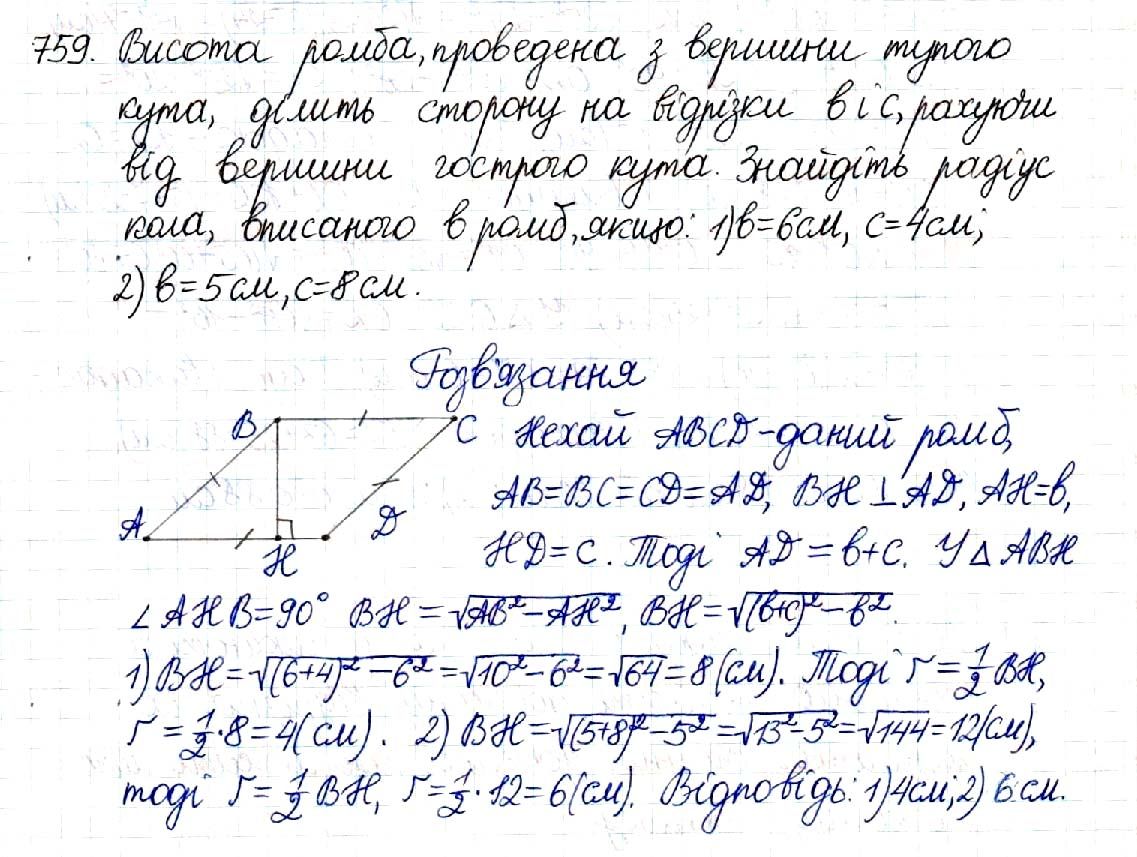 759. Висота ромба, проведена з вершини тупого
кута, ділить сторону на відрізки в і с, рахуючи
від вершини гострого кута. Знайдіть радіус
кола, вписаного в ромб, якщо: 1) в=6см, с=4см;
2) в=5см, с=8см.
Розв'язання
B
C
A
H
D
Нехай ABCD - даний ромб,
AB=BC=CD=AD, BH⊥AD, AH=в,
HD=c. Тоді AD=в+c. У △ABH
∠AHB=90° BH=√(AB²-AH²), BH=√((в+c)²-в²).
1) BH=√((6+4)²-6²)=√(10²-6²)=√64=8(см). Тоді r=1/2 BH,
r=1/2·8=4(см). 2) BH=√((5+8)²-5²)=√(13²-5²)=√144=12(см),
тоді r=1/2 BH, r=1/2·12=6(см). Відповідь: 1) 4см; 2) 6см.